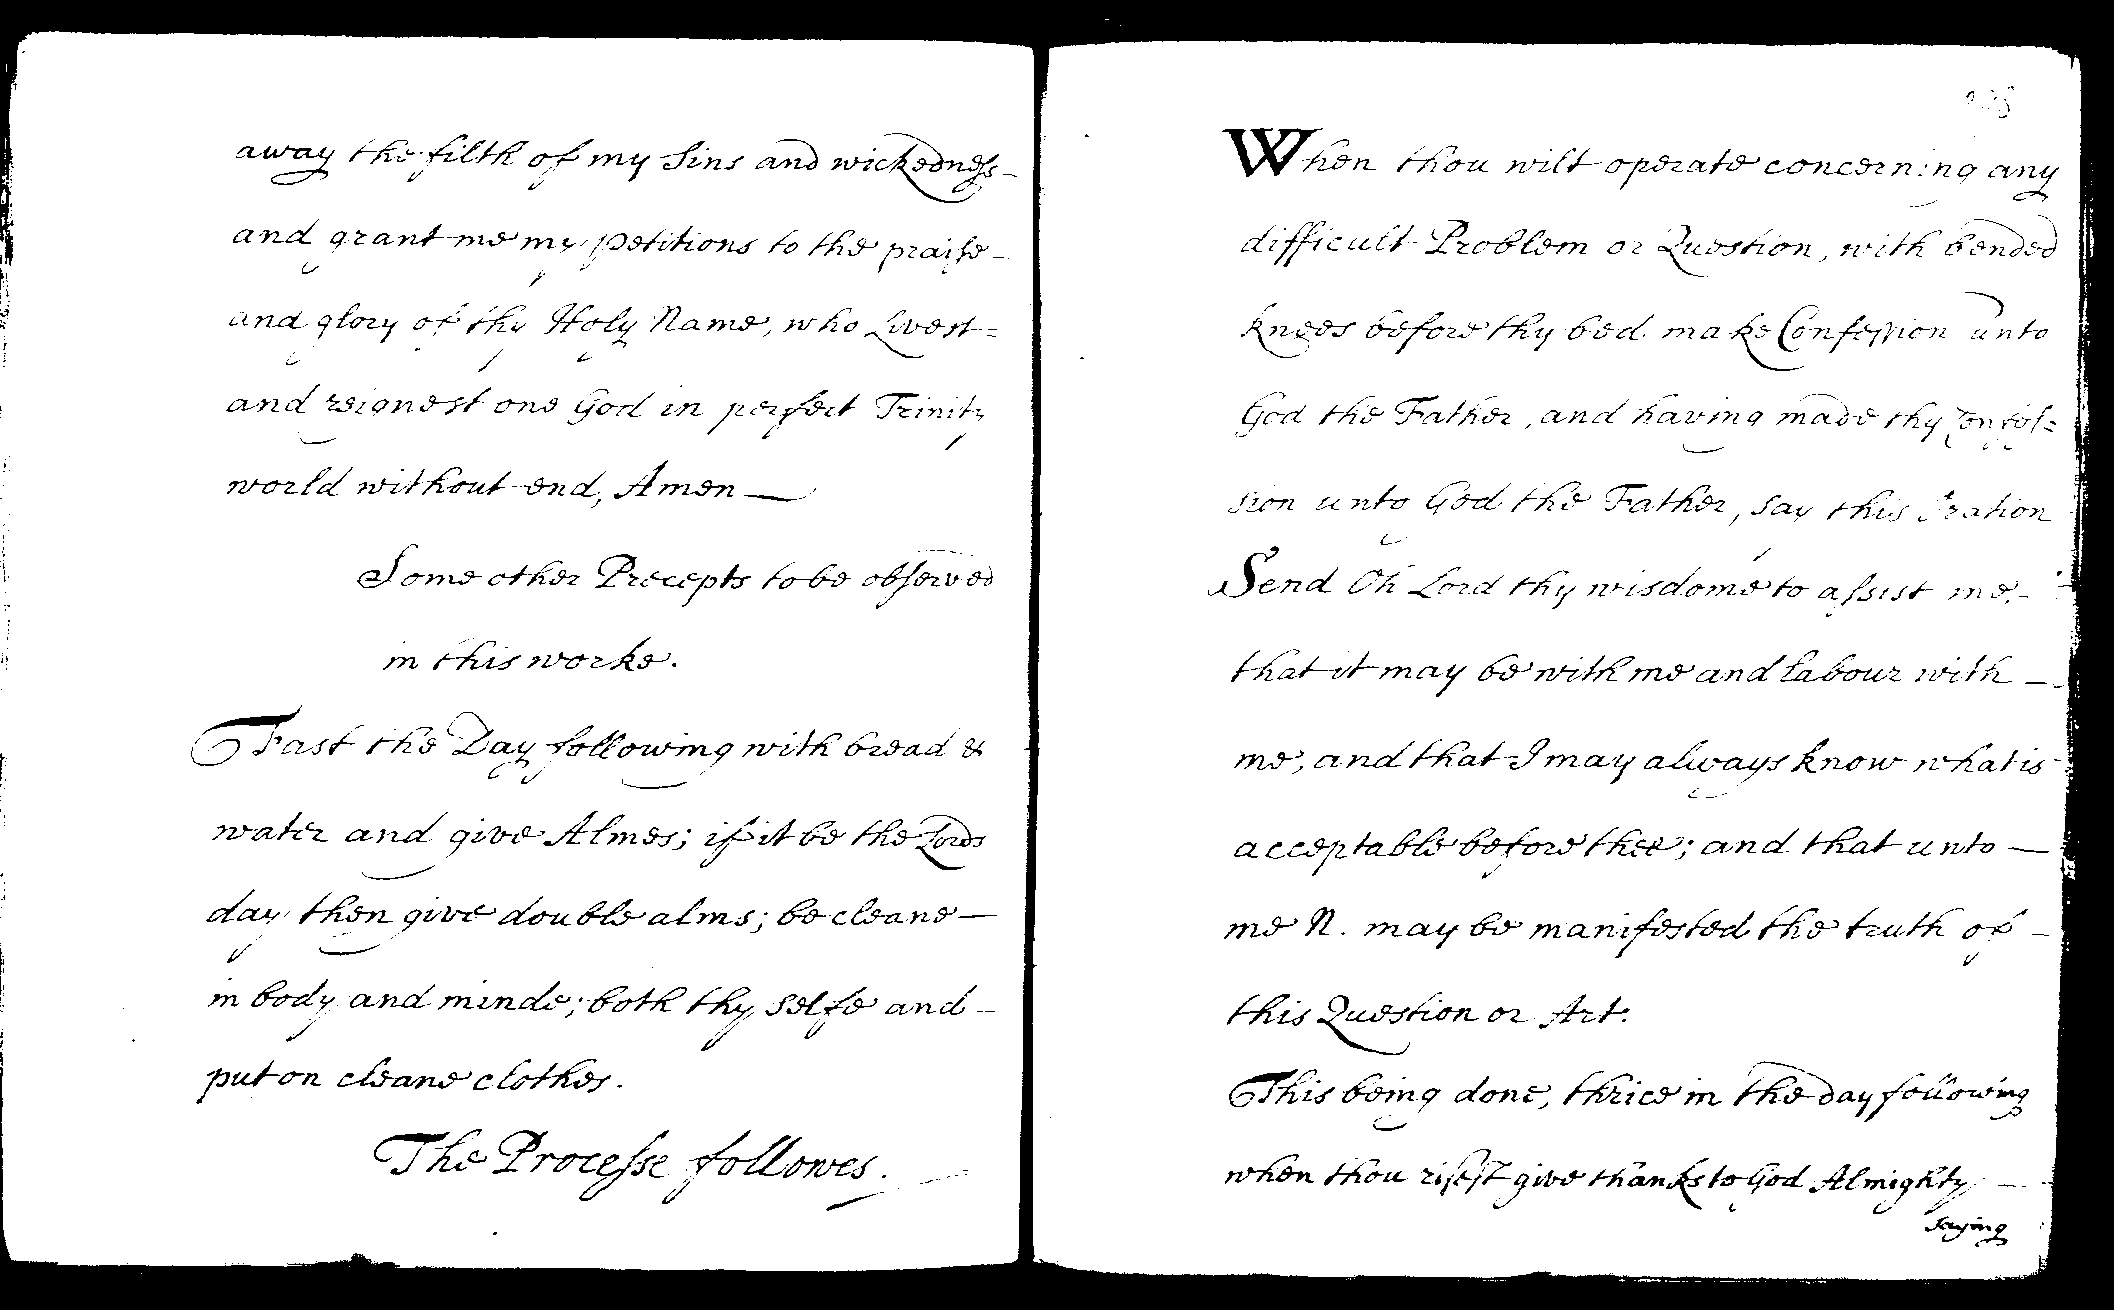 away the filth of my Sins and wickedness -
and grant me my petitions to the praise -
and glory of thy Holy Name, who Livest =
and reignest one God in perfect Trinity
world without end, Amen —
Some other Precepts to be observed
in this worke.
Fast the Day following with bread &
water and give Almes; if it be the Lords
day then give double alms; be cleane —
in body and minde; both thy selfe and -
put on cleane clothes.
The Processe followes.
When thou wilt operate concerning any
difficult Problem or Question, with bended
knees before thy bed make Confession unto
God the Father, and having made thy Confes=
sion unto God the Father, say this Oration
Send Oh Lord thy wisdome to assist me, -
that it may be with me and labour with —
me, and that I may always know what is
acceptable before thee; and that unto —
me N. may be manifested the truth of -
this Question or Art.
This being done, thrice in the day following
when thou risest give thanks to God Almighty —
saying